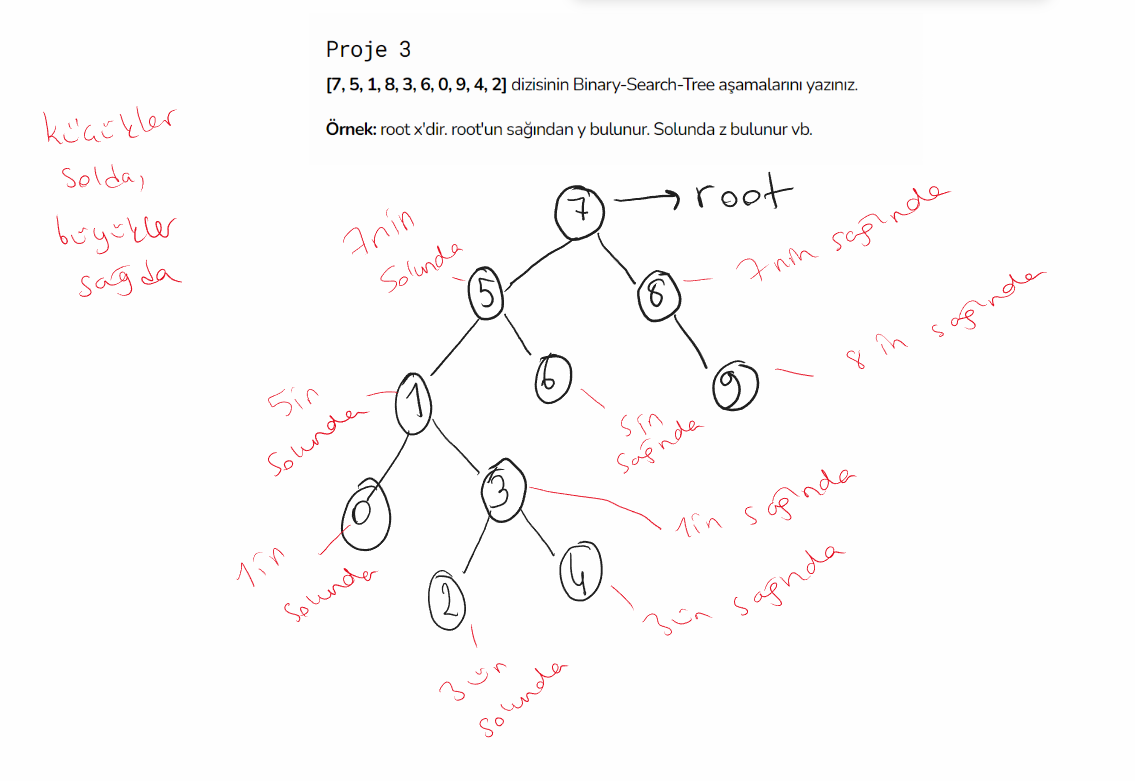 Proje 3
[7, 5, 1, 8, 3, 6, 0, 9, 4, 2] dizisinin Binary-Search-Tree aşamalarını yazınız.
Örnek: root x'dir. root'un sağından y bulunur. Solunda z bulunur vb.
küçükler
solda,
büyükler
sağda
7 → root
7nin
solunda
5
8
7nin sağında
1
6
9
8 in sağında
5in
solunda
5in
sağında
0
3
1in sağında
1in
solunda
2
4
3ün sağında
3ün
solunda